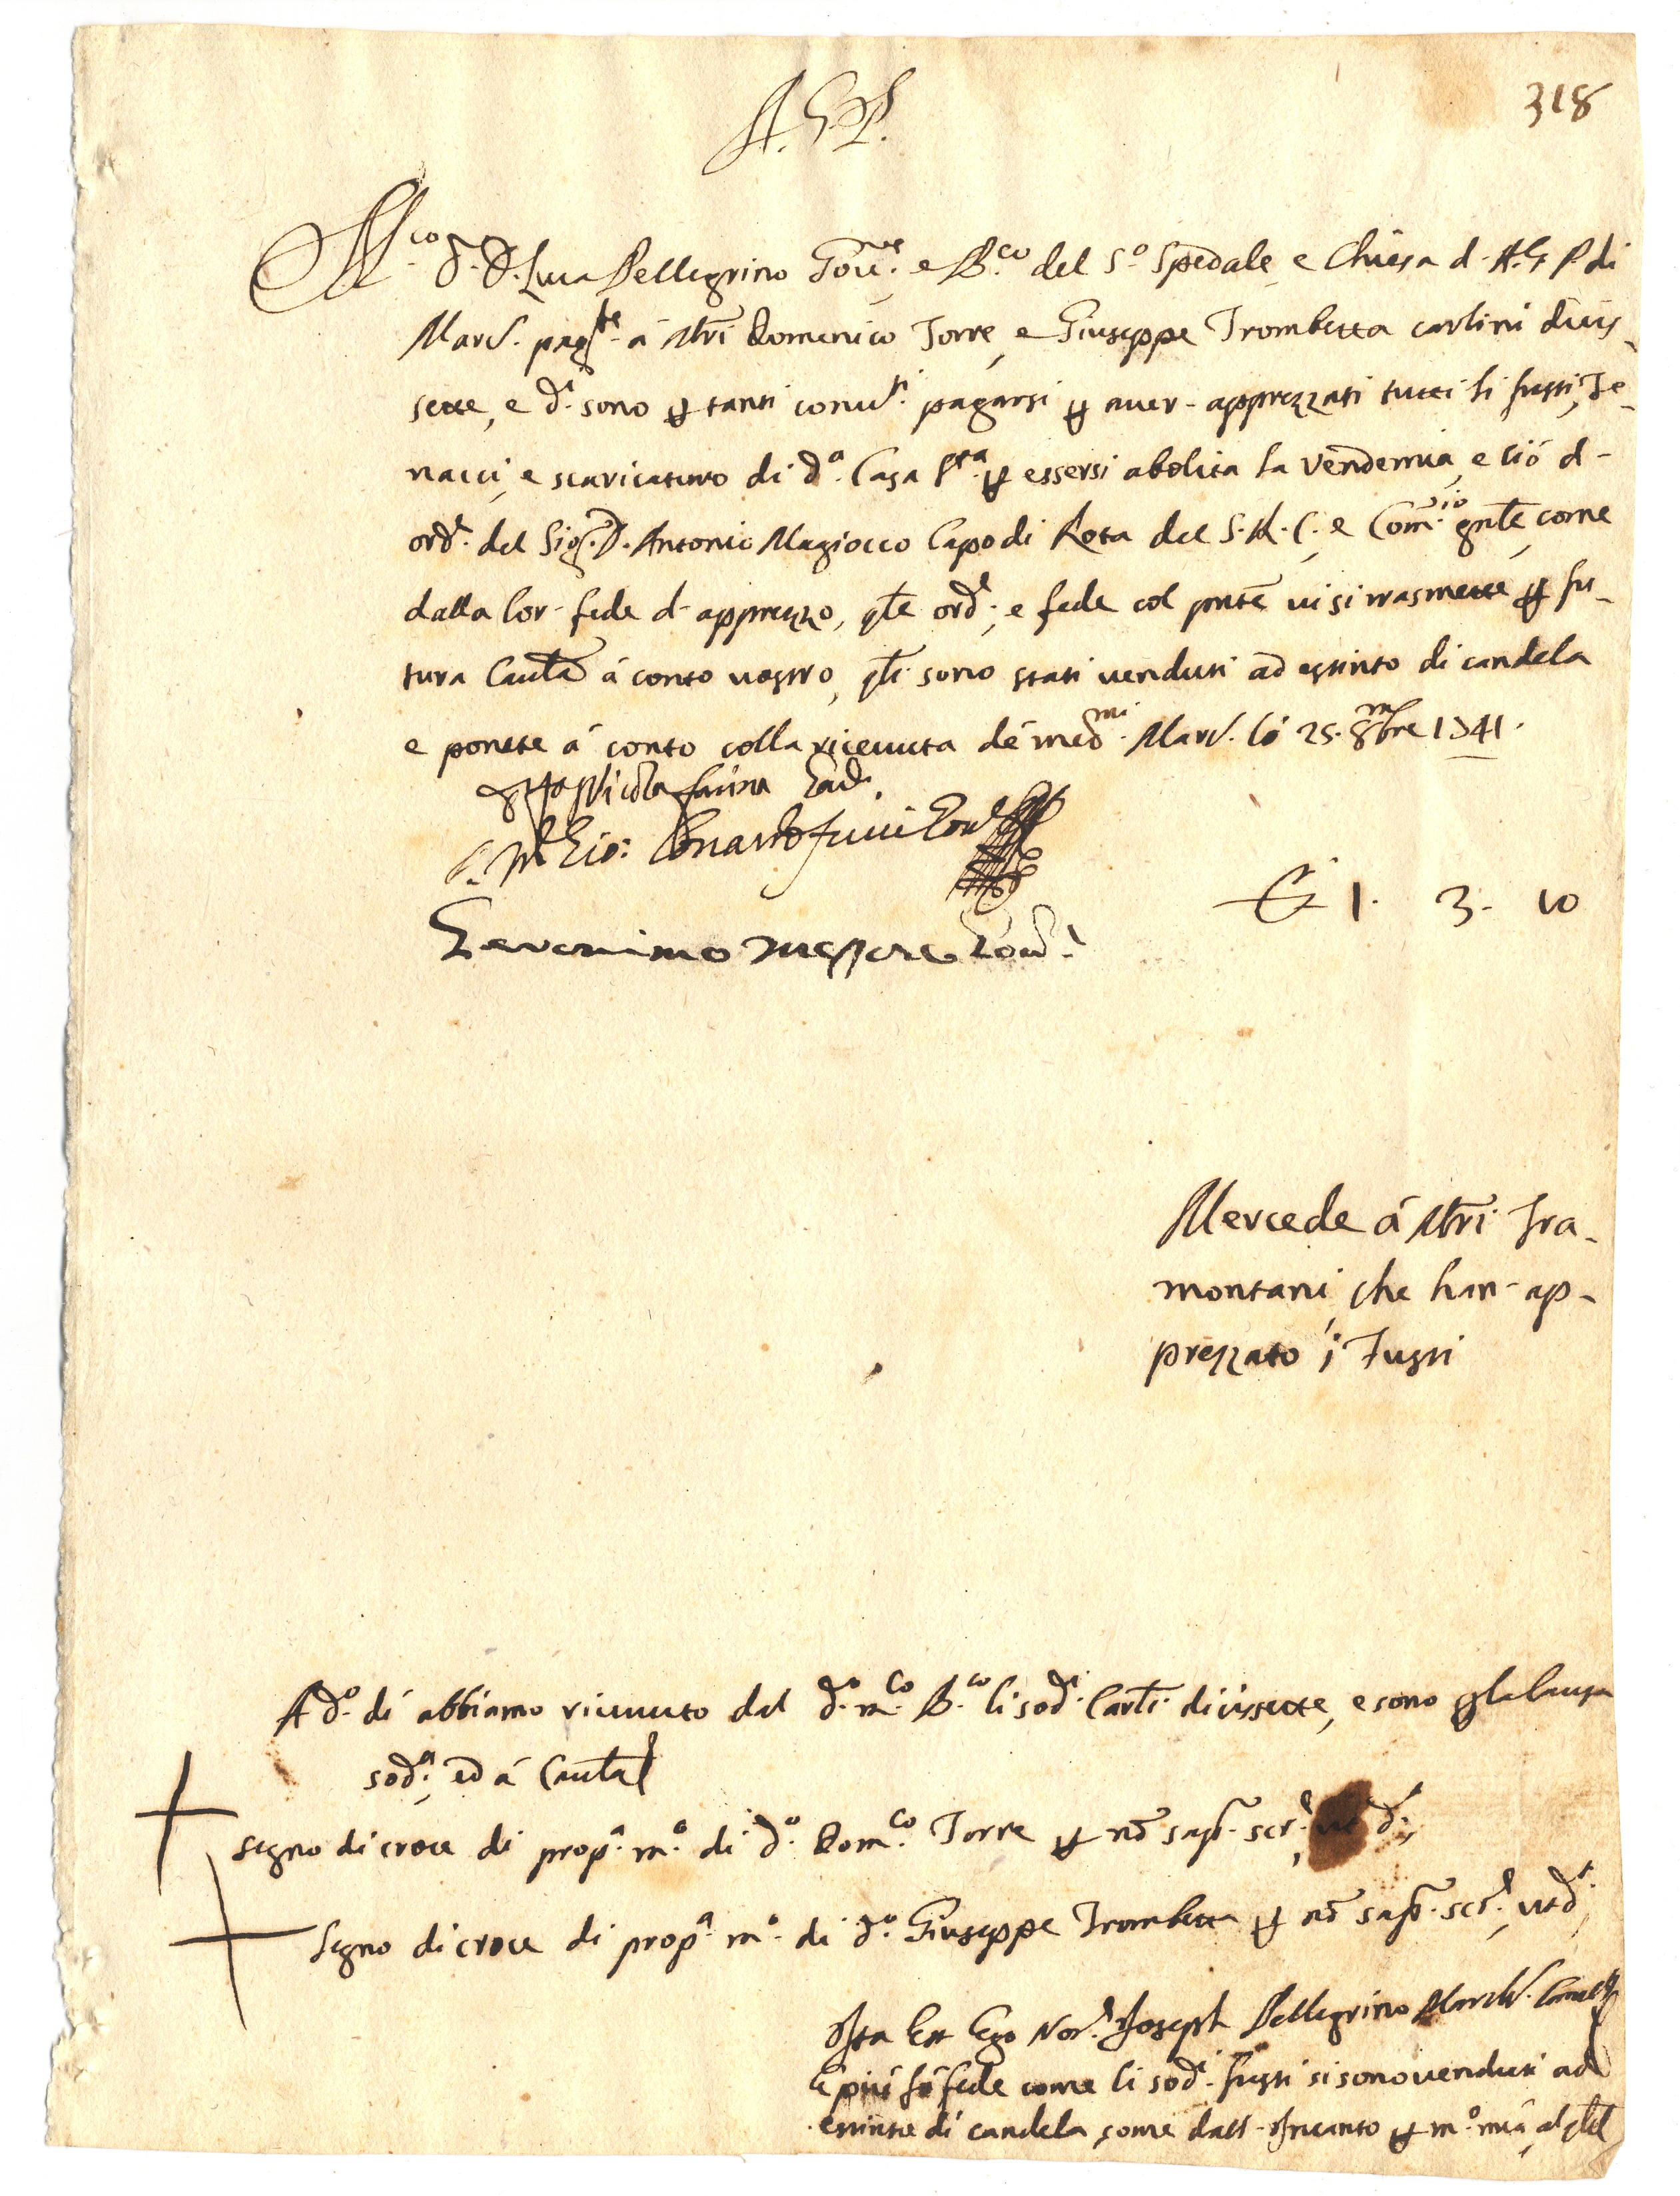 318
A. G. P.
M.co S.r D. Luca Pellegrino Gov.re e B.co del S.o Spedale, e Chiesa d. A. G. P. di
Mard. pag.te à Mri Domenico Torre, e Giuseppe Trombetta carlini dieis
sette, e d.i sono p tanti conv.ti pagarsi p aver- apprezzati tutti li fusti, Te-
nacci, e scaricaturo di d.a Casa S.ta p essersi abolita la Vendemia, e ciò d-
ord.e del Sig.r D. Antonio Magiocco Capo di Rota del S. R. C. e Com.rio gnle, come
dalla lor- fede d- apprezzo, qle ord.e, e fede col pnte vi si trasmette p fu-
tura Cautla à conto vostro, qli sono stati venduti ad estinto di candela
e ponete à conto colla ricevuta de med.mi Mard. lò 25. 8mbre 1741.
Nicola farina
Gio: Gov.e
Geronimo Messere Gov.e
1. 3. 10
Mercede à Mri Tra-
montani, che han- ap-
prezzato i Fusti
A d.o di abbiamo ricevuto dal d.o m.co B.co li sod.i Carli. dieissette, e sono p la causa
sod.a, ed à Cautla
segno di croce di prop.a m.o di d.o Dom.co Torre p nō sap. scr.e, ut d.t
Segno di croce di prop.a m.o di d.o Giuseppe Trombetta p nō sap. scr.e, ut d.t
Ita Est Ego Not.r Joseph Pellegrino
E più fò fede come li sod.i fusti si sono venduti ad
estinto di candela, come dall- Incanto p m.o mia, al qle